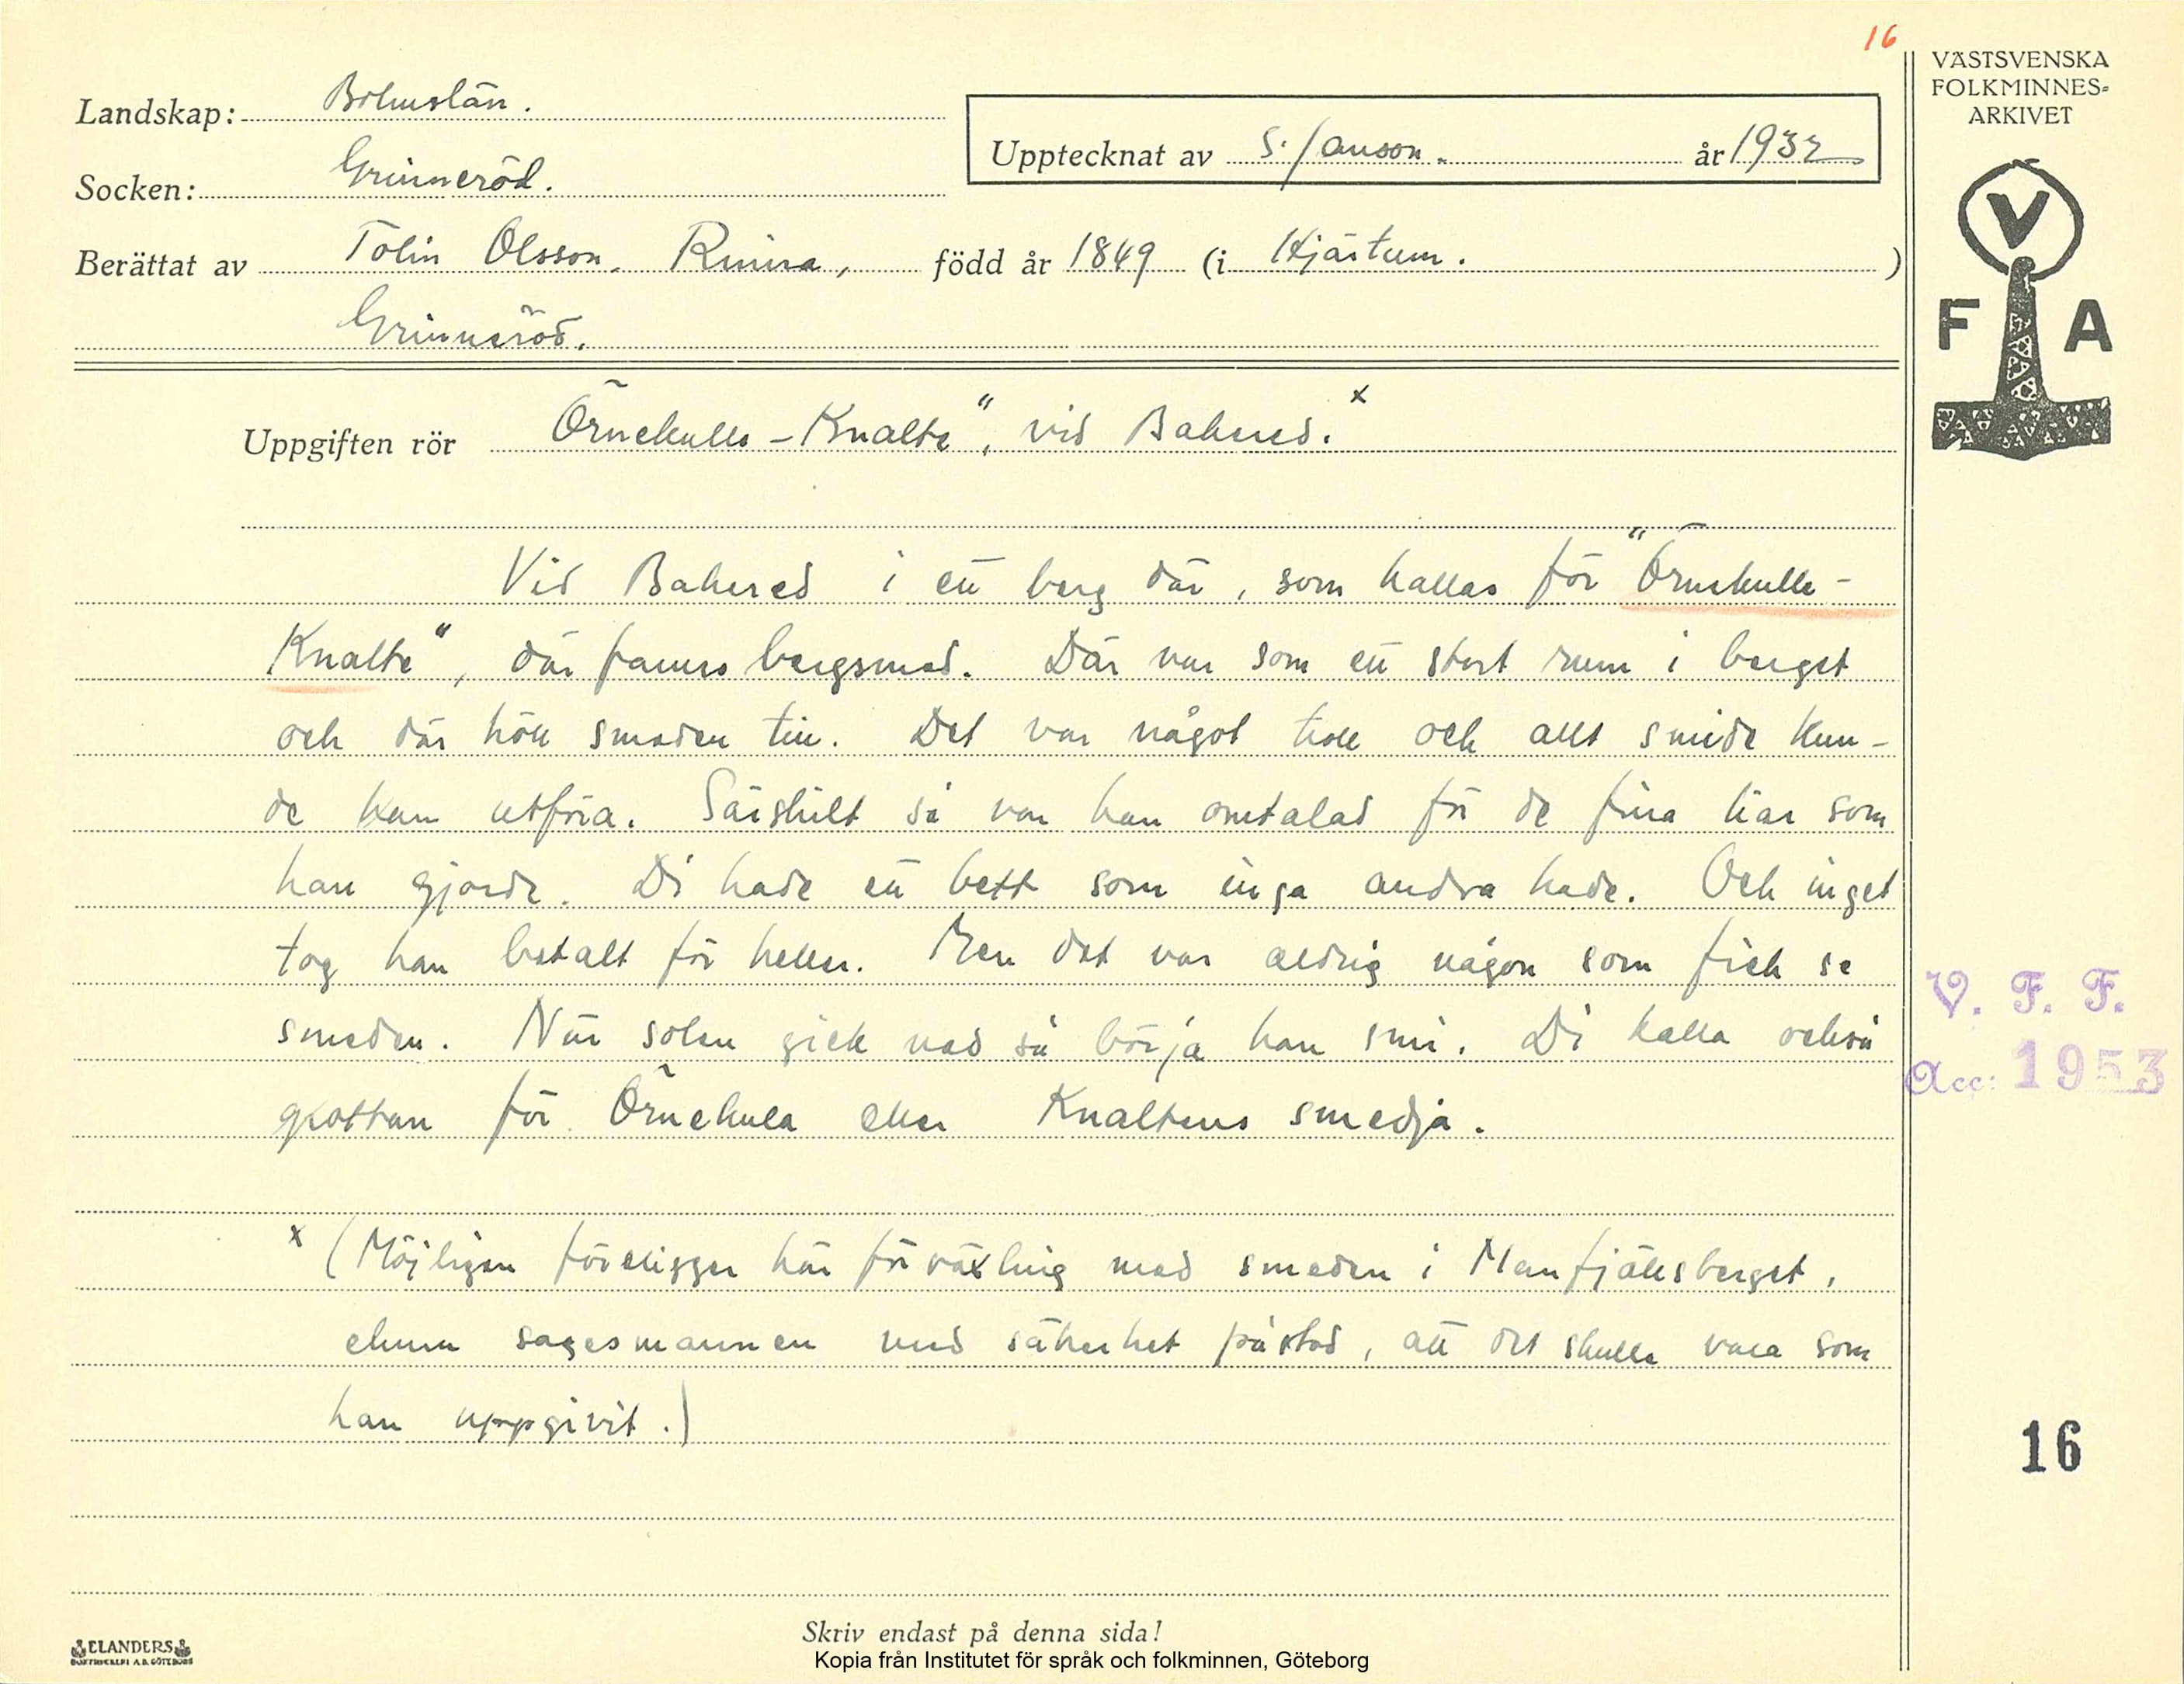 16
VÄSTSVENSKA
FOLKMINNES-
ARKIVET
Landskap: Bohuslän.
Upptecknat av S. Janson. år 1932
Socken: Grinneröd.
Berättat av Tolin Olsson, Rinna, född år 1849 (i Hjärtum. )
Grinneröd.
V
F A
Uppgiften rör Örnekulls-Knalte", vid Bakered. x
Vid Bakered i ett berg där, som kallas för "Örnekulle-
Knalte", där fanns bergsmed. Där var som ett stort rum i berget
och där höll smeden till. Det var något troll och allt smide kun-
de han utföra. Särskilt så var han omtalad för de fina liar som
han gjorde. Di hade ett bett som inga andra hade. Och inget
tog han betalt för heller. Men det var aldrig någon som fick se
smeden. När solen gick ned så börja han smi. Di kalla också
grottan för Örnekula eller Knaltens smedja.
V. F. F.
Acc: 1953
x (Möjligen föreligger här förväxling med smeden i Manfjällsberget,
ehuru sagesmannen med säkerhet påstod, att det skulle vara som
han uppgivit.)
16
Skriv endast på denna sida!
ELANDERS
BOKTRYCKERI A.B. GÖTEBORG
Kopia från Institutet för språk och folkminnen, Göteborg